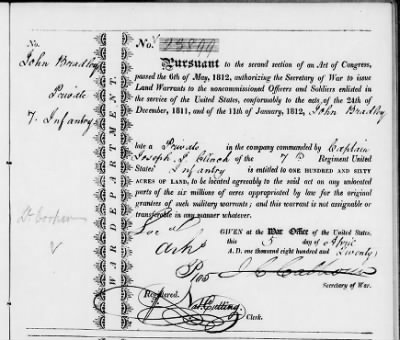 No.
John Bradley
Private
7. Infantry
WAR DEPARTMENT.
No. 23899
Pursuant to the second section of an Act of Congress,
passed the 6th of May, 1812, authorizing the Secretary of War to issue
Land Warrants to the noncommissioned Officers and Soldiers enlisted in
the service of the United States, conformably to the acts of the 24th of
December, 1811, and of the 11th of January, 1812, John Bradley
late a Private in the company commanded by Captain
Joseph J. Clinch of the 7th Regiment United
States' Infantry is entitled to ONE HUNDRED AND SIXTY
ACRES OF LAND, to be located agreeably to the said act on any unlocated
parts of the six millions of acres appropriated by law for the original
grantees of such military warrants; and this warrant is not assignable or
transferable in any manner whatever.
GIVEN at the War Office of the United States,
this 5 day of April
A. D. one thousand eight hundred and twenty
J C Calhoun
Secretary of War.
Registered.
Nat. Cutting
Clerk.